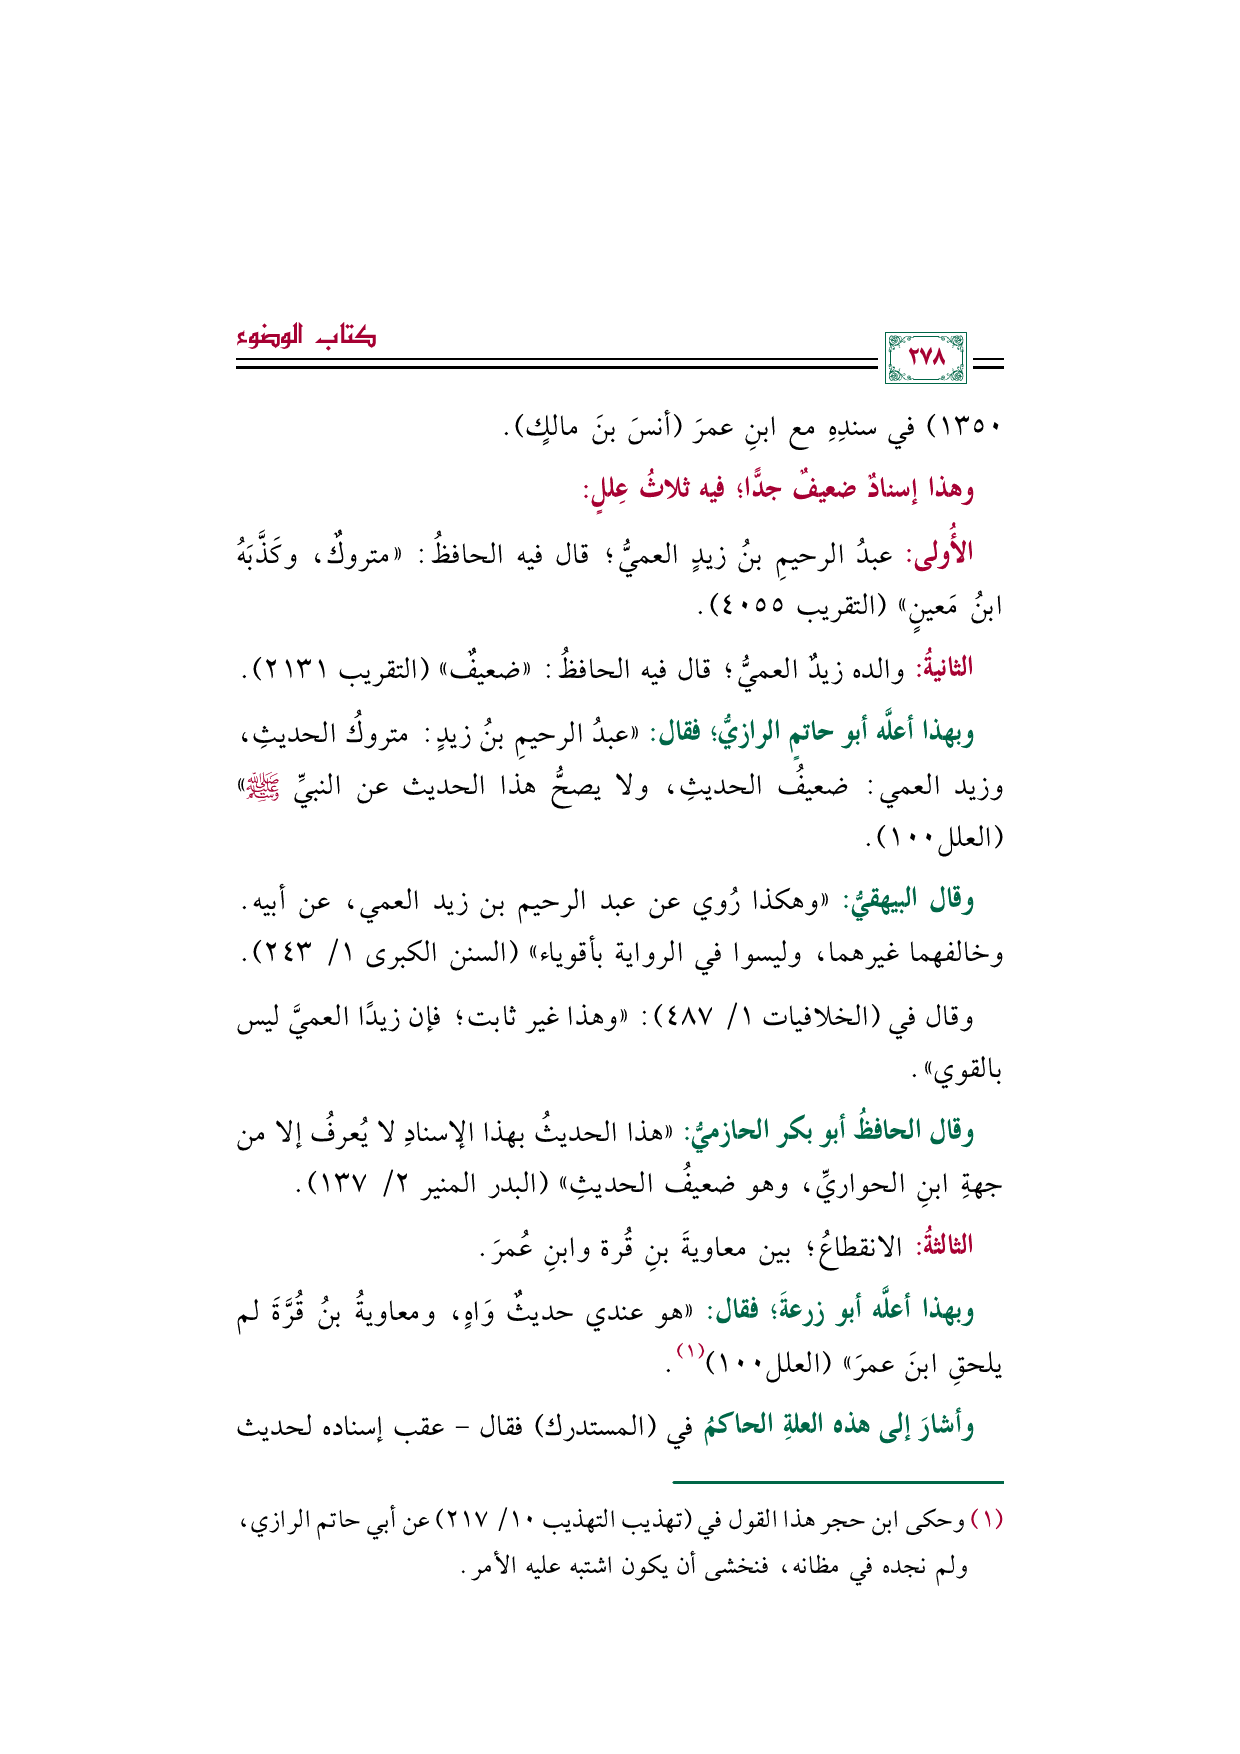 كتاب الوضوء
٢٧٨
١٣٥٠) في سندِهِ مع ابنِ عمرَ (أنسَ بنَ مالكٍ).
وهذا إسنادٌ ضعيفٌ جدًّا؛ فيه ثلاثُ عِللٍ:
الأُولى: عبدُ الرحيمِ بنُ زيدٍ العميُّ؛ قال فيه الحافظُ: «متروكٌ، وكَذَّبَهُ
ابنُ مَعينٍ» (التقريب ٤٠٥٥).
الثانيةُ: والده زيدٌ العميُّ؛ قال فيه الحافظُ: «ضعيفٌ» (التقريب ٢١٣١).
وبهذا أعلَّه أبو حاتمٍ الرازيُّ؛ فقال: «عبدُ الرحيمِ بنُ زيدٍ: متروكُ الحديثِ،
وزيد العمي: ضعيفُ الحديثِ، ولا يصحُّ هذا الحديث عن النبيِّ ﷺ»
(العلل١٠٠).
وقال البيهقيُّ: «وهكذا رُوي عن عبد الرحيم بن زيد العمي، عن أبيه.
وخالفهما غيرهما، وليسوا في الرواية بأقوياء» (السنن الكبرى ١/ ٢٤٣).
وقال في (الخلافيات ١/ ٤٨٧): «وهذا غير ثابت؛ فإن زيدًا العميَّ ليس
بالقوي».
وقال الحافظُ أبو بكر الحازميُّ: «هذا الحديثُ بهذا الإسنادِ لا يُعرفُ إلا من
جهةِ ابنِ الحواريِّ، وهو ضعيفُ الحديثِ» (البدر المنير ٢/ ١٣٧).
الثالثةُ: الانقطاعُ؛ بين معاويةَ بنِ قُرة وابنِ عُمرَ.
وبهذا أعلَّه أبو زرعةَ؛ فقال: «هو عندي حديثٌ وَاهٍ، ومعاويةُ بنُ قُرَّةَ لم
يلحقِ ابنَ عمرَ» (العلل١٠٠)(١).
وأشارَ إلى هذه العلةِ الحاكمُ في (المستدرك) فقال – عقب إسناده لحديث
(١) وحكى ابن حجر هذا القول في (تهذيب التهذيب ١٠/ ٢١٧) عن أبي حاتم الرازي،
ولم نجده في مظانه، فنخشى أن يكون اشتبه عليه الأمر.